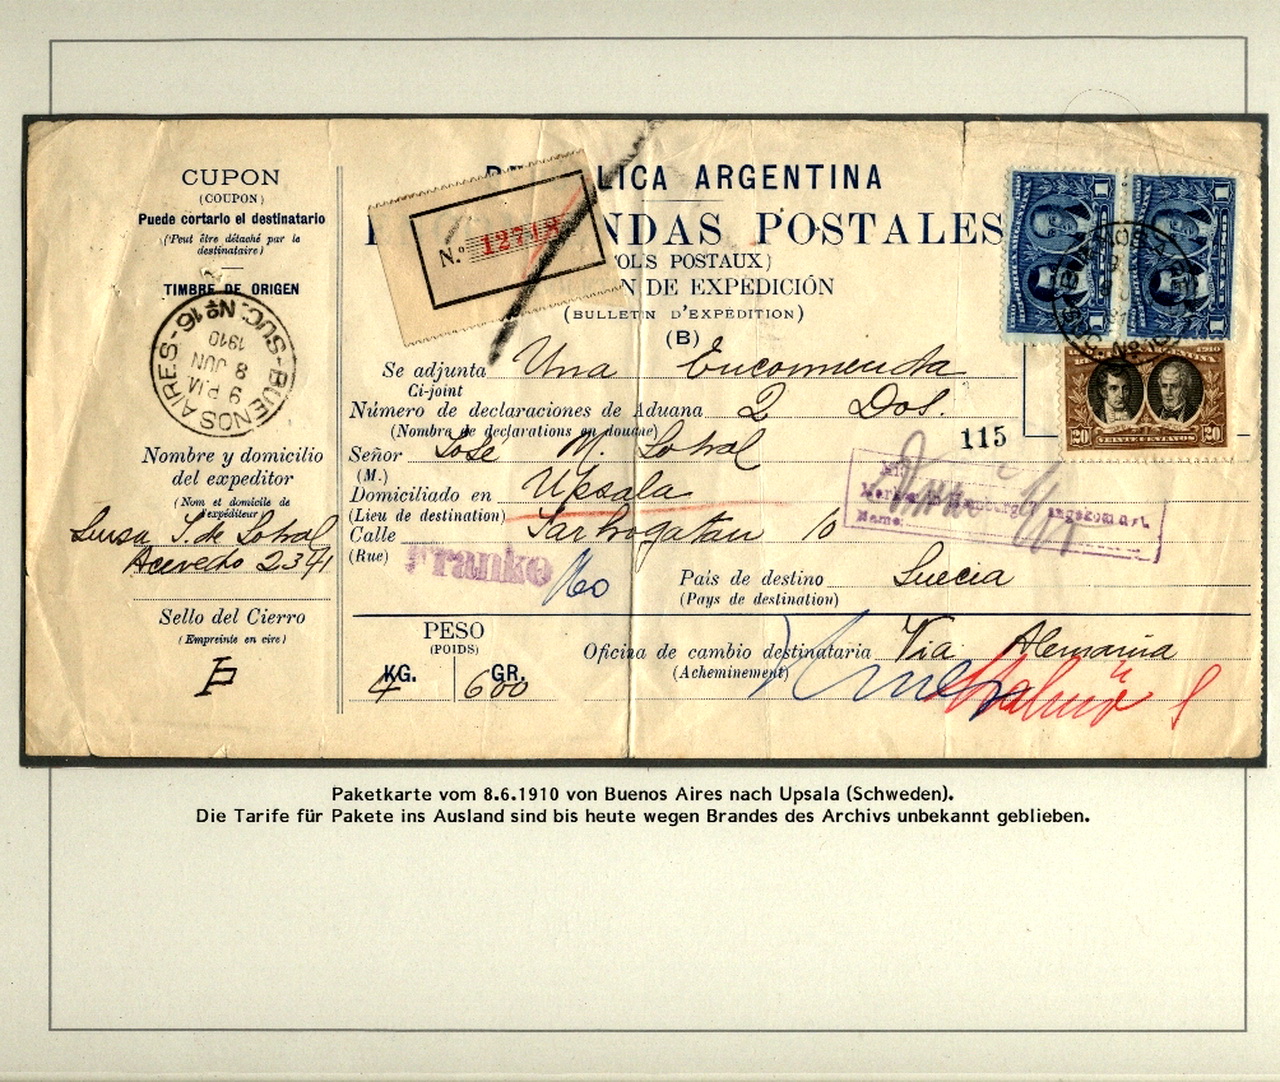 CUPON
(COUPON)
Puede cortarlo el destinatario
(Peut être détaché par le
destinataire)
TIMBRE DE ORIGEN
BUENOS AIRES-SUC. Nº 16-
9 P.M
8 JUN
1910
Nombre y domicilio
del expeditor
(Nom et domicile de
l'expéditeur)
Luisa S. de Sobral
Acevedo 2341
Sello del Cierro
(Empreinte en cire)
LICA ARGENTINA
NDAS POSTALES
N.º 12718
OLIS POSTAUX)
N DE EXPEDICIÓN
(BULLETIN D'EXPÉDITION)
(B)
Se adjunta Una Encomienda
Ci-joint
Número de declaraciones de Aduana 2 Dos.
(Nombre de déclarations en douane)
Señor José M. Sobral
(M.)
115
Domiciliado en Upsala
(Lieu de destination)
Calle Jarbrogatan 10
(Rue)
Franko
País de destino Suecia
(Pays de destination)
PESO
(POIDS)
KG. GR.
4 600
Oficina de cambio destinataria Via Alemania
(Acheminement)
Malmö
1 1
1 1
1910
20 VEINTE CENTAVOS 20
Hamburg eingekommen.
Name:
Paketkarte vom 8.6.1910 von Buenos Aires nach Upsala (Schweden).
Die Tarife für Pakete ins Ausland sind bis heute wegen Brandes des Archivs unbekannt geblieben.